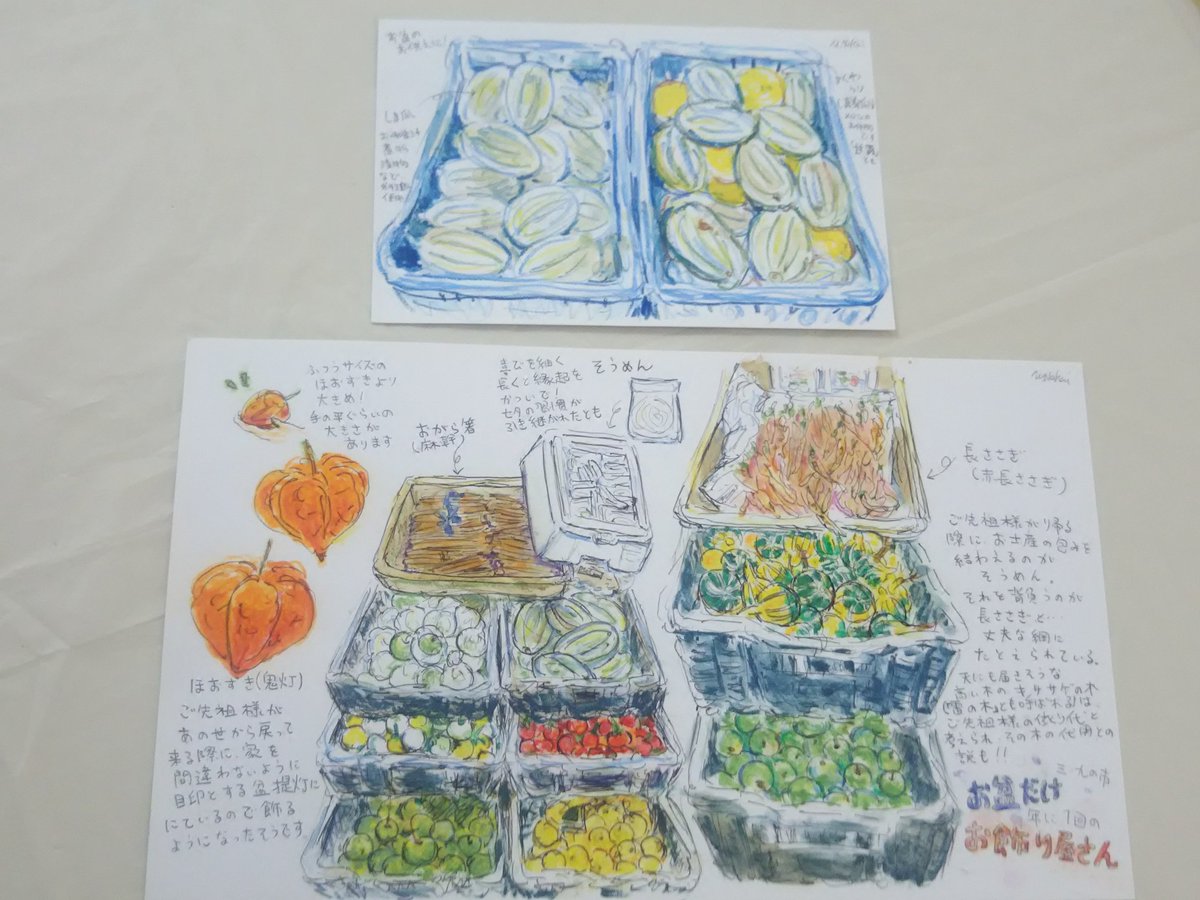 お盆の
しま瓜
など
ふつうサイズの
ほおずきより
大きめ!
手の平ぐらいの
大きさが
あります
おがら箸
(麻幹)
喜びを細く
長くと縁起を
かついで!
七夕の習慣が
引き継がれたとも
そうめん
長ささぎ
(赤長ささぎ)
ほおずき(鬼灯)
ご先祖様が
あの世から戻って
来る際に、家を
間違わないように
目印とする盆提灯に
にているので飾る
ようになったそうです
ご先祖様がり帰る
際に、お土産の包みを
結わえるのが
そうめん。
それを背負うのが
長ささぎと…
丈夫な綱に
たとえられている。
天にも届きそうな
高い木のキササゲの木
(「雷の木」とも呼ばれる)は、
ご先祖様の依り代と
考えられ、その木の代用との
説も!!
お盆だけ
年に1回の
お飾り屋さん